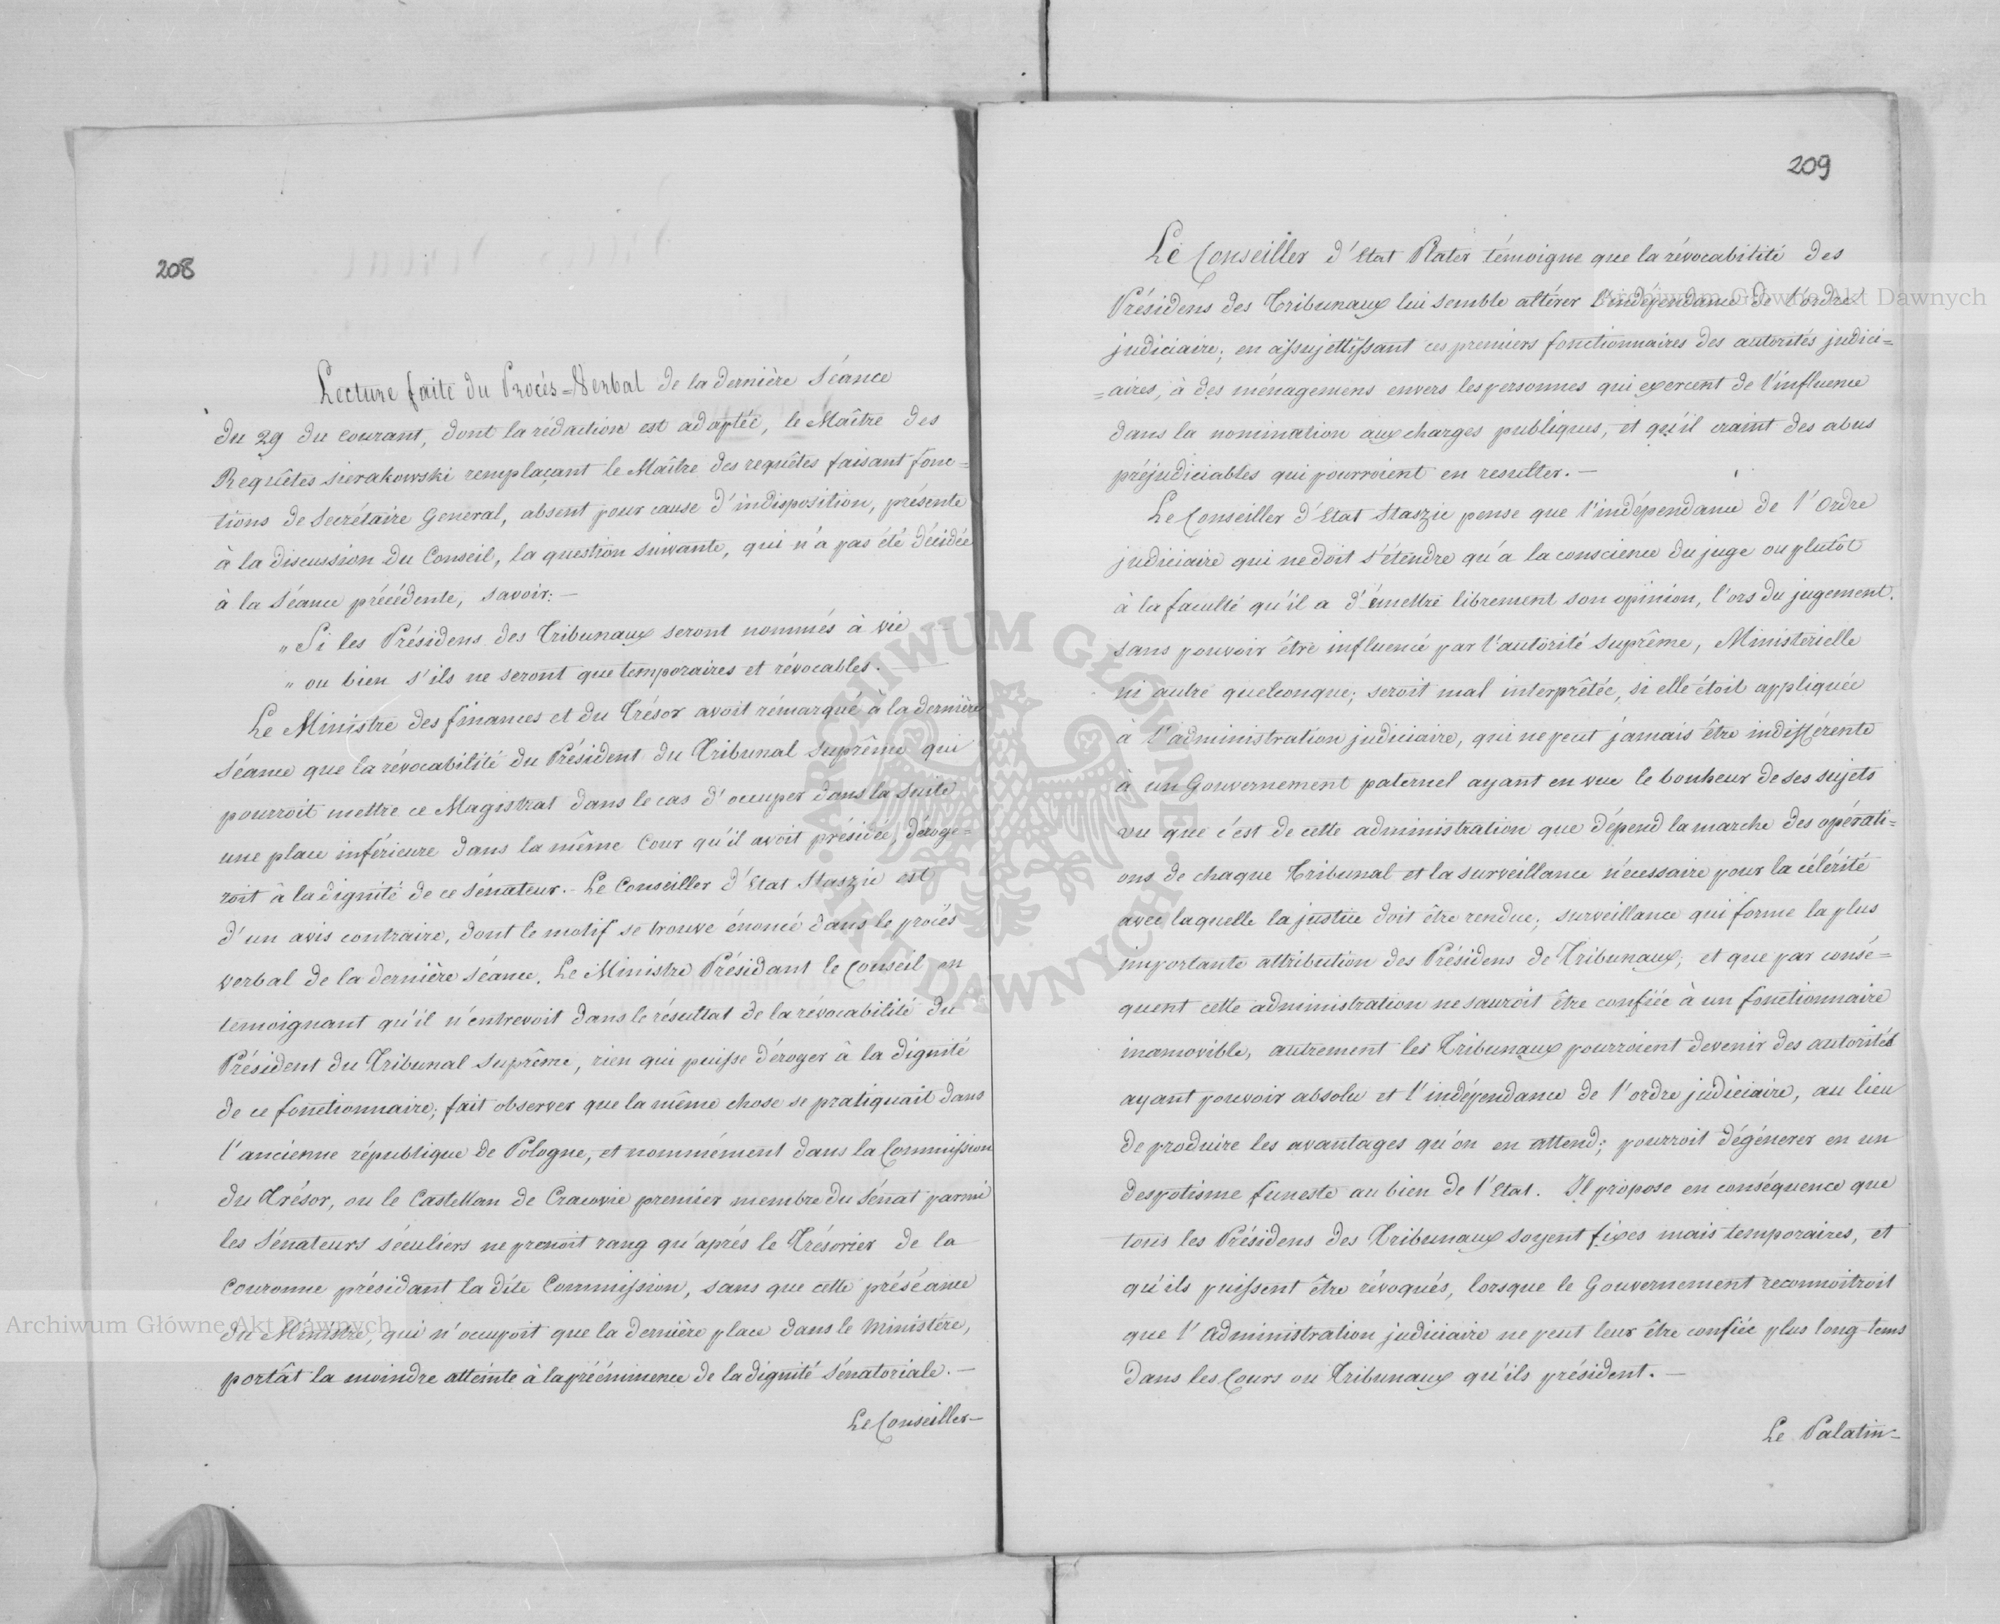 208
Lecture faite du Procès=Verbal de la dernière Séance
du 29 du courant, dont la rédaction est adoptée, le Maître des
Requêtes Sierakowski remplaçant le Maître des requêtes faisant fonc=
tions de Secrétaire Général, absent pour cause d'indisposition, présente
à la discussion du Conseil, la question suivante, qui n'a pas été décidée
à la Séance précédente, savoir: —
„ Si les Présidens des Tribunaux seront nommés à vie
„ ou bien s'ils ne seront que temporaires et révocables. —
Le Ministre des finances et du Trésor avoit rémarqué à la dernière
Séance que la révocabilité du Président du Tribunal Suprême qui
pourroit mettre ce Magistrat dans le cas d'occuper dans la suite
une place inférieure dans la même Cour qu'il avoit présidée, déroge=
roit à la dignité de ce Sénateur. — Le Conseiller d'Etat Staszic est
d'un avis contraire, dont le motif se trouve énoncé dans le procès
verbal de la dernière Séance. Le Ministre Présidant le Conseil en
temoignant qu'il n'entrevoit dans le résultat de la révocabilité du
Président du Tribunal Suprême, rien qui puisse déroger à la dignité
de ce fonctionnaire; fait observer que la même chose se pratiquait dans
l'ancienne république de Pologne, et nommément dans la Commission
du Trésor, ou le Castellan de Cracovie premier membre du Sénat parmi
les Sénateurs séculiers ne prenoit rang qu'après le Trésorier de la
Couronne présidant la dite Commission, sans que cette préséance
du Ministre, qui n'occupoit que la dernière place dans le Ministère,
portât la moindre atteinte à la prééminence de la dignité Sénatoriale. —
Le Conseiller —
209
Le Conseiller d'Etat Plater témoigne que la révocabilité des
Présidens des Tribunaux lui semble altérer l'indépendance de l'ordre
judiciaire; en assujettissant ces premiers fonctionnaires des autorités judici=
=aires, à des ménagemens envers les personnes qui exercent de l'influence
dans la nomination aux charges publiques, et qu'il craint des abus
préjudiciables qui pourroient en resulter. —
Le Conseiller d'Etat Staszic pense que l'indépendance de l'Ordre
judiciaire qui ne doit s'étendre qu'a la conscience du juge ou plutôt
à la faculté qu'il a d'émettre librement son opinion, l'ors du jugement.
sans pouvoir être influencé par l'autorité suprême, Ministerielle
ni autre quelconque; seroit mal interprêtée, si elle étoit appliquée
à l'administration judiciaire, qui ne peut jamais être indifférente
à un Gouvernement paternel ayant en vue le bonheur de ses sujets
vu que c'est de cette administration que dépend la marche des opérati=
ons de chaque Tribunal et la surveillance nécessaire pour la célérité
avec laquelle la justice doit être rendue; surveillance qui forme la plus
importante attribution des Présidens de Tribunaux; et que par consé=
quent cette administration ne sauroit être confiée à un fonctionnaire
inamovible, autrement les Tribunaux pourroient devenir des autorités
ayant pouvoir absolu et l'indépendance de l'ordre judiciaire, au lieu
de produire les avantages qu'on en attend; pourroit dégénerer en un
despotisme funeste au bien de l'Etat. Il propose en conséquence que
tous les Présidens des Tribunaux soyent fixes mais temporaires, et
qu'ils puissent être révoqués, lorsque le Gouvernement reconnoitroit
que l'Administration judiciaire ne peut leur être confiée plus long-tems
dans les Cours ou Tribunaux qu'ils président. —
Le Palatin —
Archiwum Główne Akt Dawnych
ARCHIWUM GŁÓWNE AKT DAWNYCH
Archiwum Główne Akt Dawnych